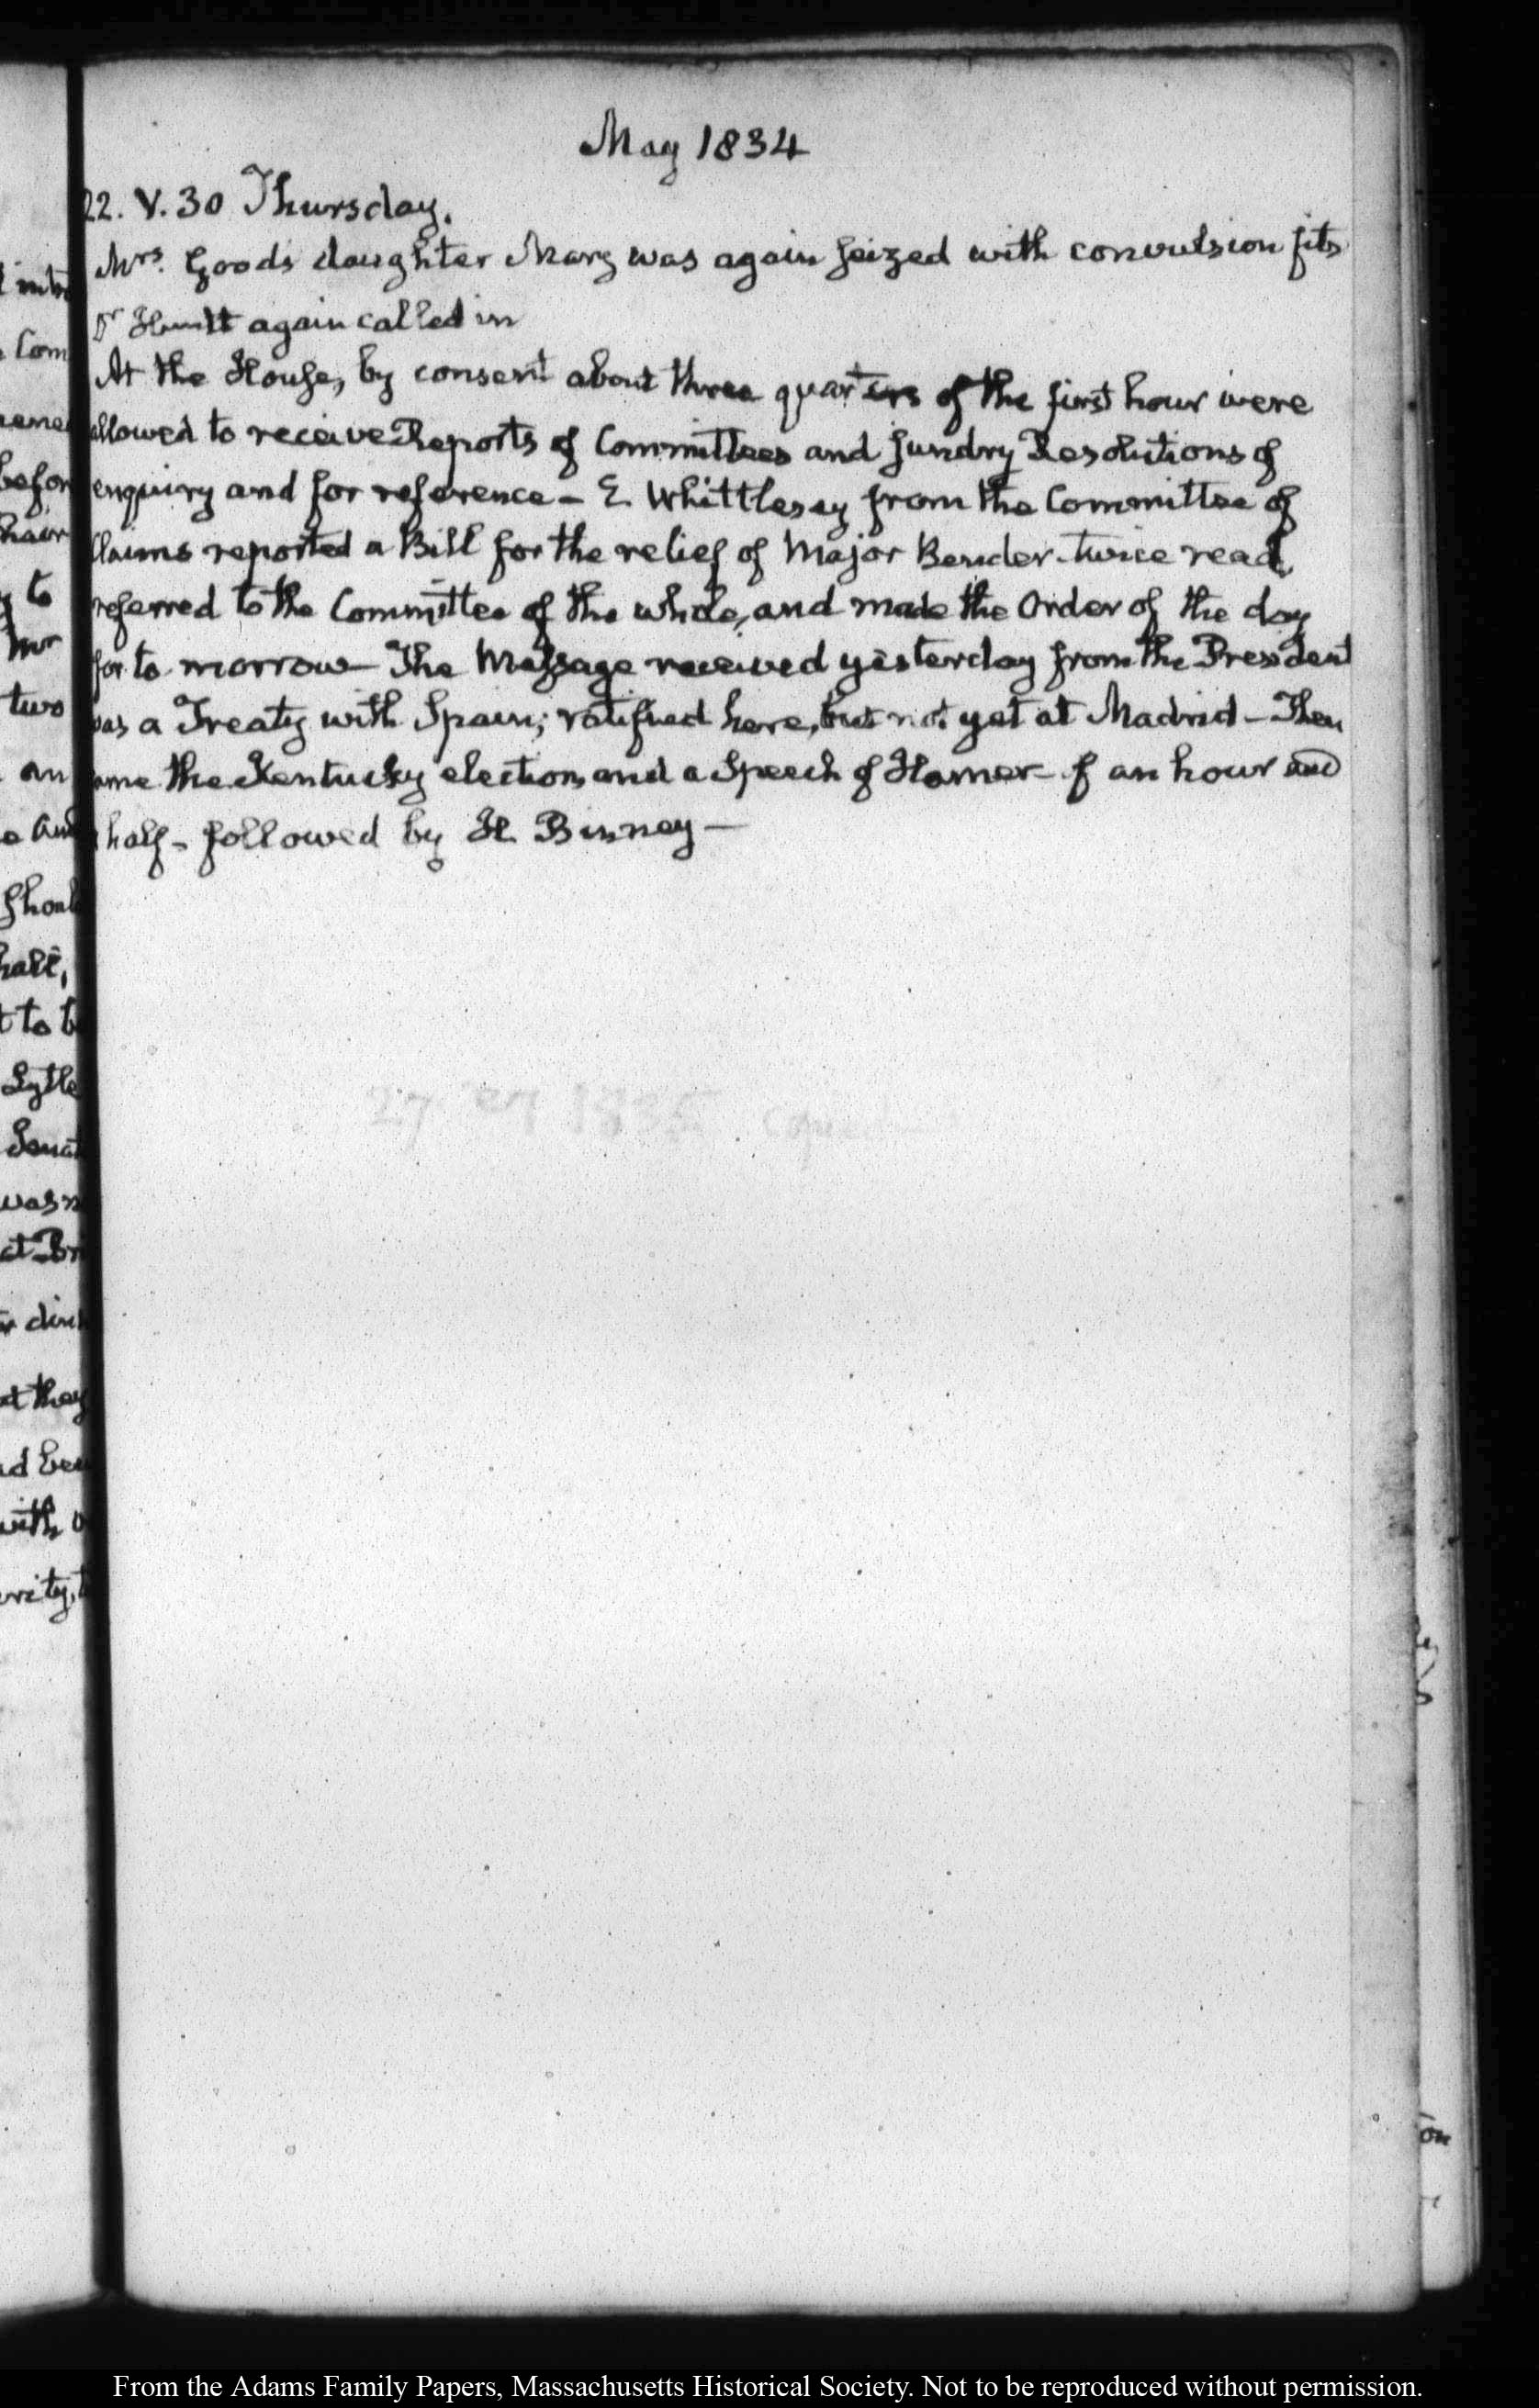 May 1834
22. V. 30 Thursday.
Mrs. Goods daughter Mary was again seized with convulsion fits
Dr Huntt again called in
At the House, by consent about three quarters of the first hour were
allowed to receive Reports of Committees and sundry Resolutions of
enquiry and for reference — E Whittlesey from the Committee of
Claims reported a Bill for the relief of Major Bender twice read,
referred to the Committee of the whole, and made the Order of the day
for to morrow — The Message received yesterday from the President
was a Treaty with Spain; ratified here, but not yet at Madrid — Then
came the Kentucky election, and a Speech of Hamer of an hour and
half — followed by H Binney —
27 1835 copied
befor
to
Mr
two
an
Lytle
From the Adams Family Papers, Massachusetts Historical Society. Not to be reproduced without permission.